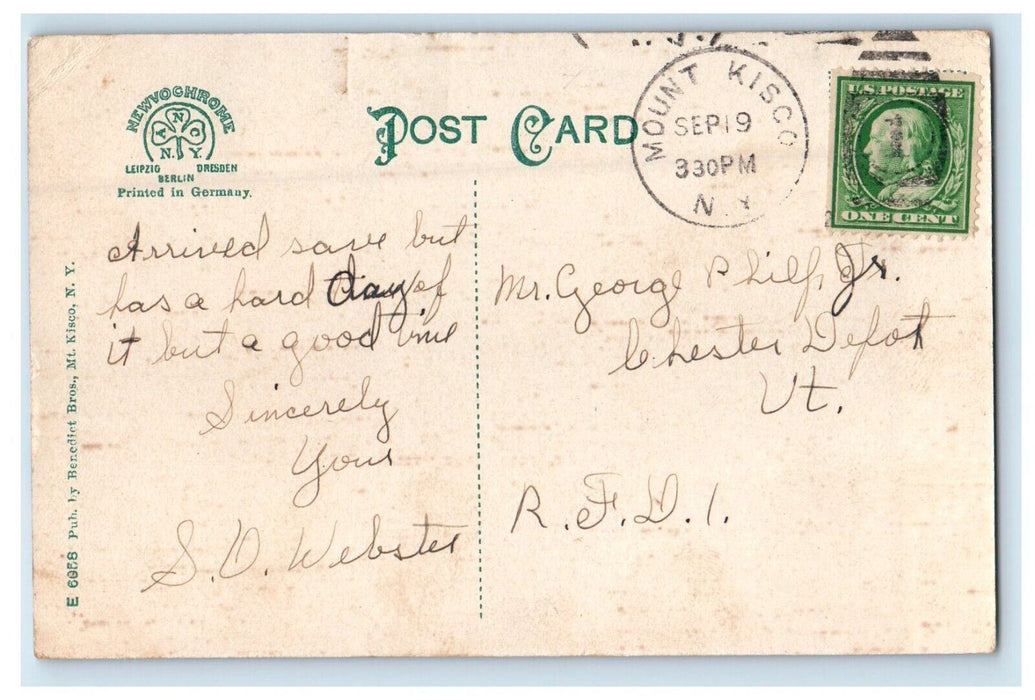 NEWVOCHROME
ANC
N.Y.
LEIPZIG DRESDEN
BERLIN
Printed in Germany.
POST CARD
MOUNT KISCO
SEP 19
330PM
N.Y.
U.S. POSTAGE
ONE CENT
Arrived save but
has a hard day of
it but a good time
Sincerely
Your
S. O. Webster
Mr. George Philps Jr.
Chester Depot
Vt.
R. F. D. 1.
E 6058 Pub. by Benedict Bros., Mt. Kisco, N. Y.